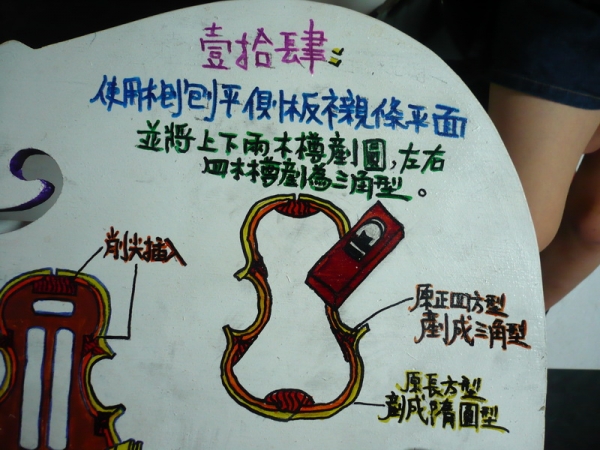 壹拾肆:
使用刨刨平側板襯條平面
並將上下兩木樽劃圓,左右
四木樽劃為三角型。
削尖插入
原正四方型
劃成三角型
原長方型
劃成隋圓型